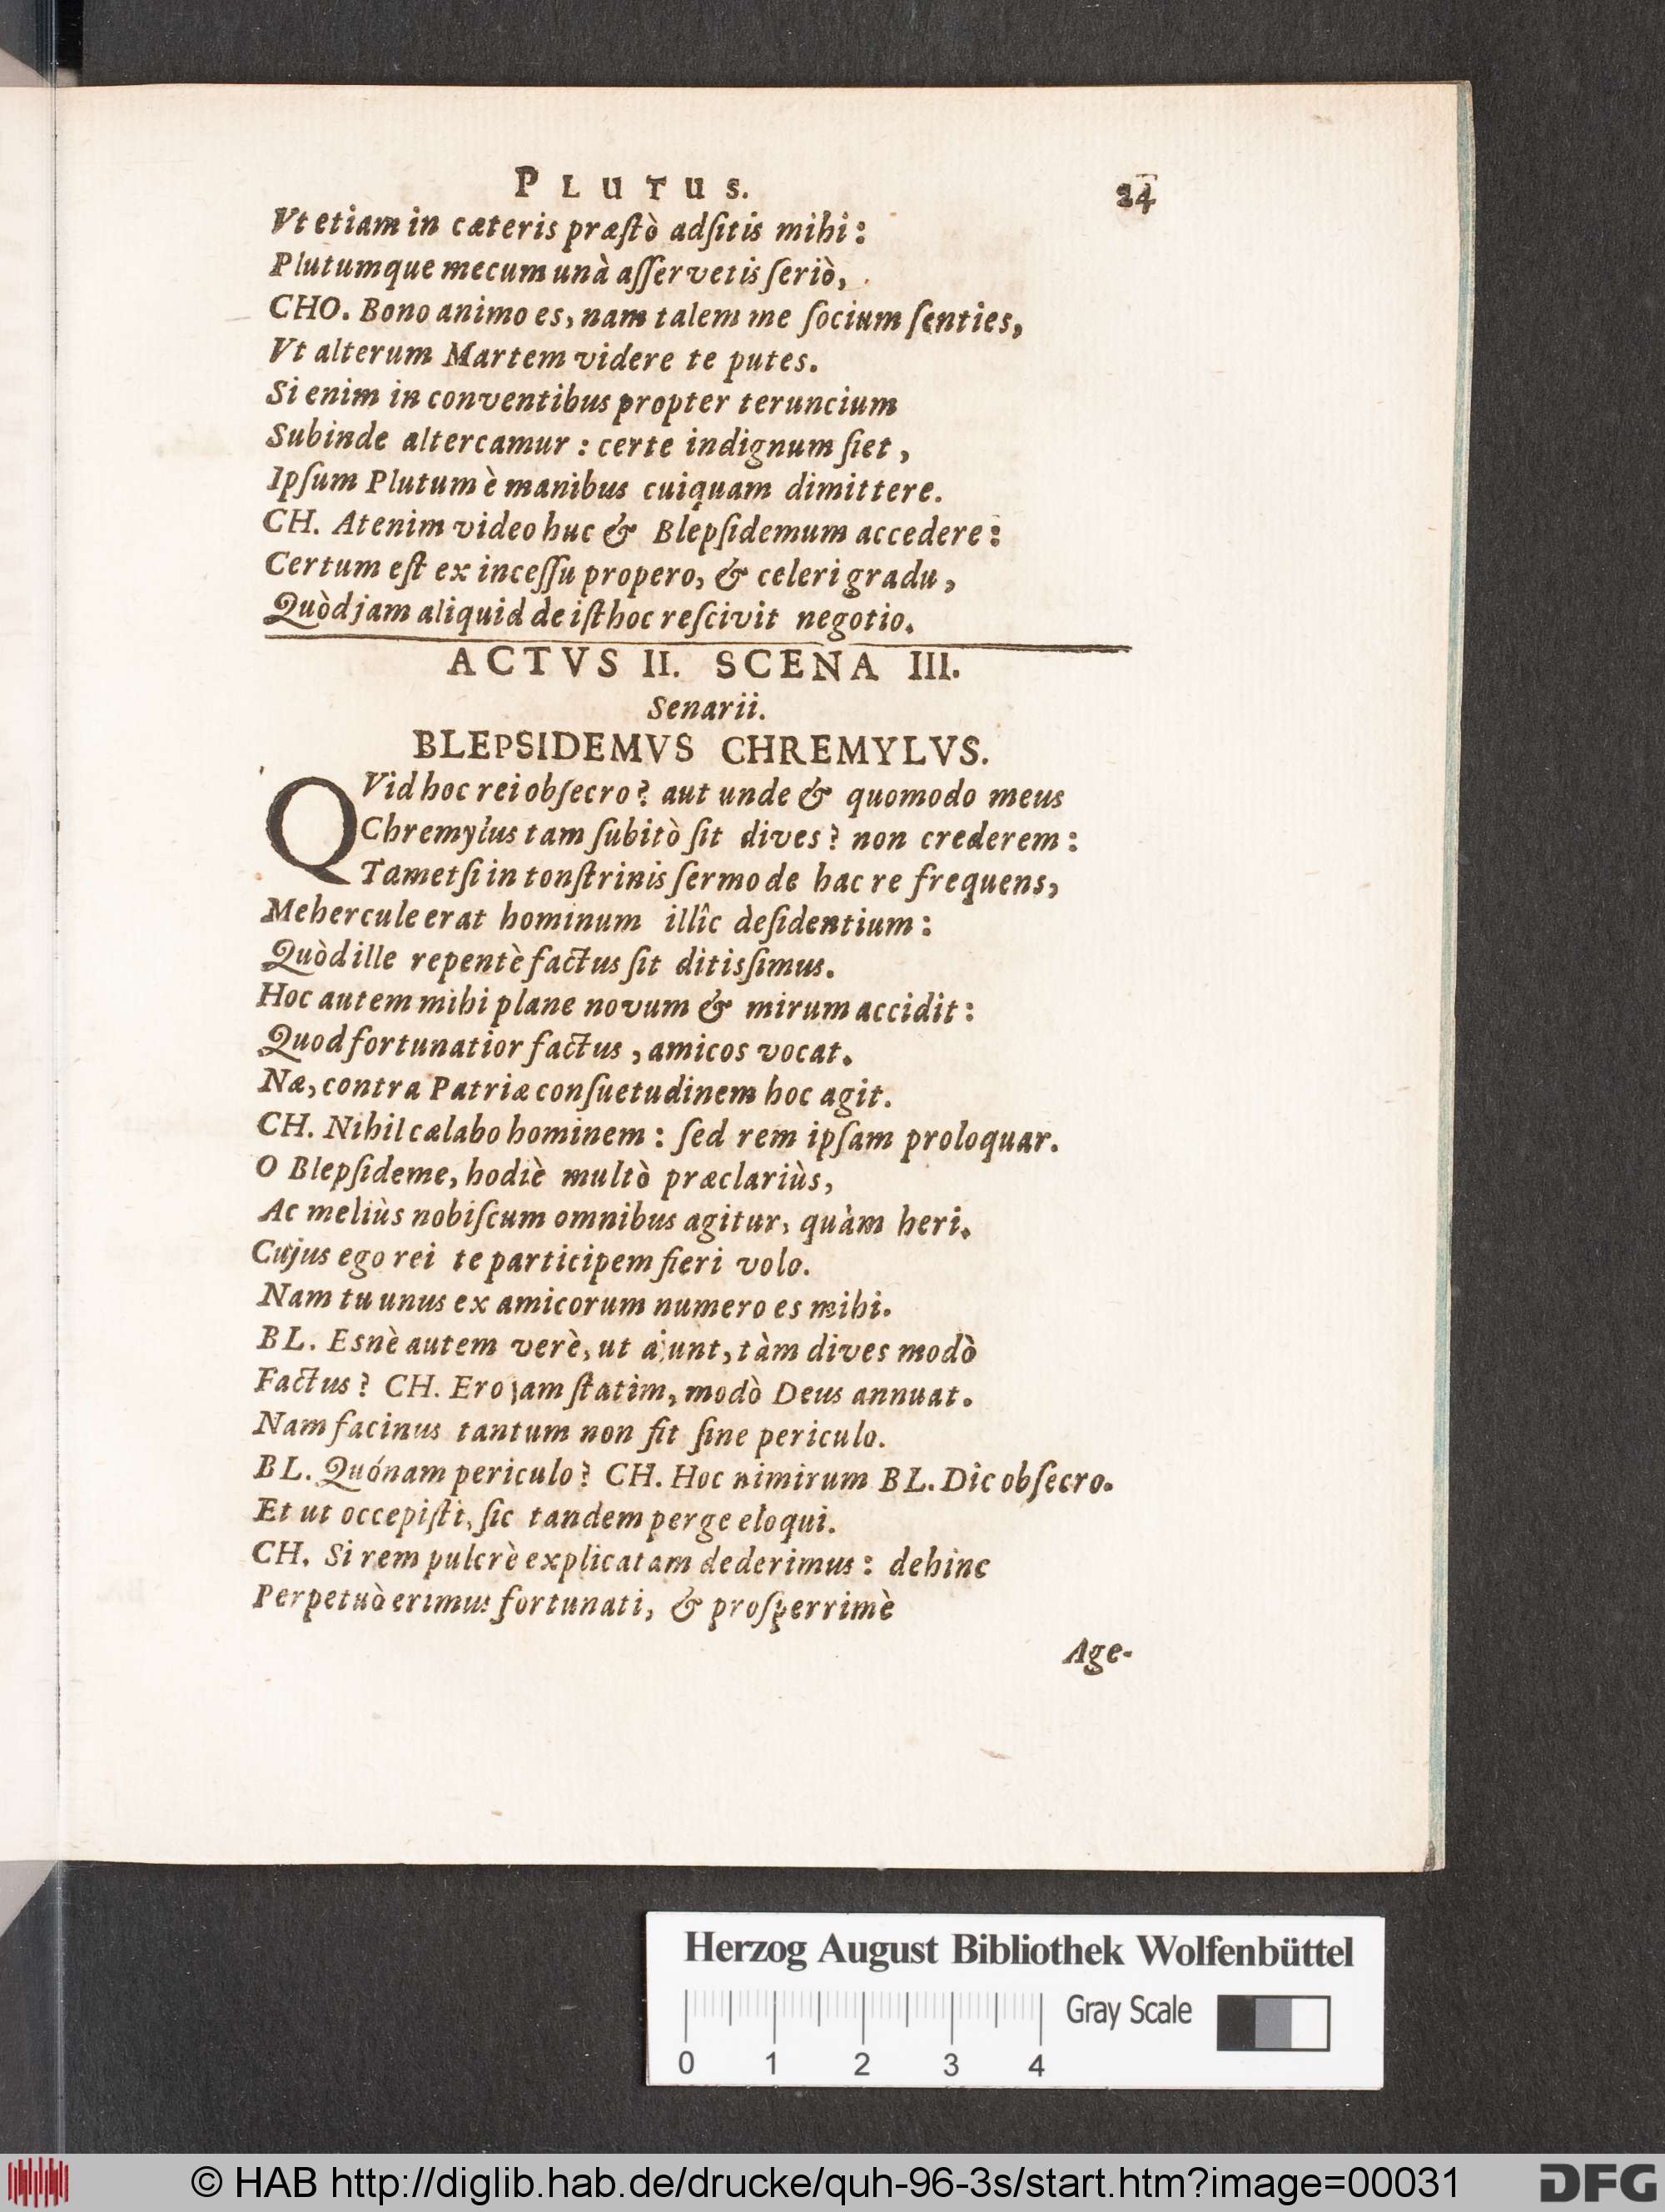 PLUTUS. 24
Vt etiam in cæteris præſtò adſitis mihi:
Plutumque mecum unà aſſervetis ſeriò,
CHO. Bono animo es, nam talem me ſocium ſenties,
Vt alterum Martem videre te putes.
Si enim in conventibus propter teruncium
Subinde altercamur: certe indignum fiet,
Ipſum Plutum è manibus cuiquam dimittere.
CH. Atenim video huc & Blepſidemum accedere:
Certum eſt ex inceſſu propero, & celeri gradu,
Quòd jam aliquid de iſthoc reſcivit negotio.
ACTVS II. SCENA III.
Senarii.
BLEPSIDEMVS CHREMYLVS.
QVid hoc rei obſecro? aut unde & quomodo meus
Chremylus tam ſubitò ſit dives? non crederem:
Tametſi in tonſtrinis ſermo de hac re frequens,
Mehercule erat hominum illîc deſidentium:
Quòd ille repentè factus ſit ditiſſimus.
Hoc autem mihi plane novum & mirum accidit:
Quod fortunatior factus, amicos vocat.
Næ, contra Patriæ conſuetudinem hoc agit.
CH. Nihil cælabo hominem: ſed rem ipſam proloquar.
O Blepſideme, hodiè multò præclariùs,
Ac meliùs nobiſcum omnibus agitur, quàm heri.
Cujus ego rei te participem fieri volo.
Nam tu unus ex amicorum numero es mihi.
BL. Esnè autem verè, ut ajunt, tàm dives modò
Factus? CH. Ero jam ſtatim, modò Deus annuat.
Nam facinus tantum non fit ſine periculo.
BL. Quónam periculo? CH. Hoc nimirum BL. Dic obſecro.
Et ut occepiſti, ſic tandem perge eloqui.
CH. Si rem pulcrè explicatam dederimus: dehinc
Perpetuò erimus fortunati, & proſperrimè
Age-
Herzog August Bibliothek Wolfenbüttel
Gray Scale
0 1 2 3 4
© HAB http://diglib.hab.de/drucke/quh-96-3s/start.htm?image=00031
DFG